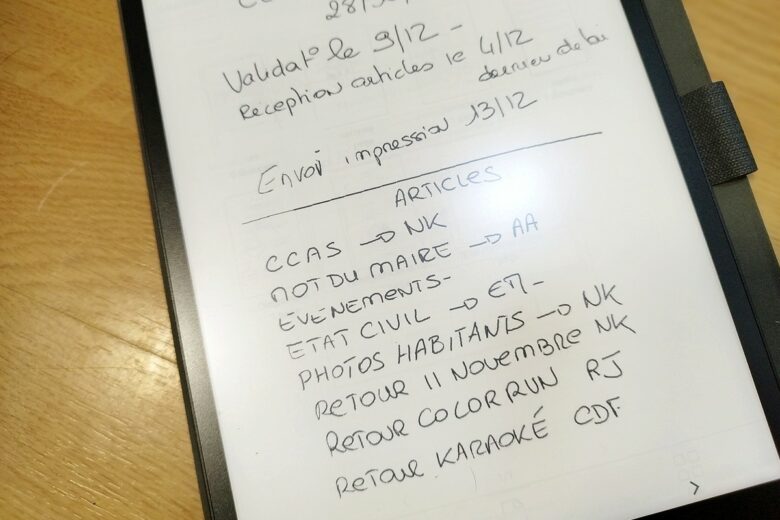 28/
Validat° le 9/12 -
Réception articles le 4/12
dernier délai
Envoi impression 13/12
ARTICLES
CCAS → NK
MOT DU MAIRE → AA
EVENEMENTS-
ETAT CIVIL → ETL -
PHOTOS HABITANTS → NK
RETOUR 11 NOVEMBRE NK
RETOUR COLOR RUN RJ
RETOUR KARAOKÉ CDF